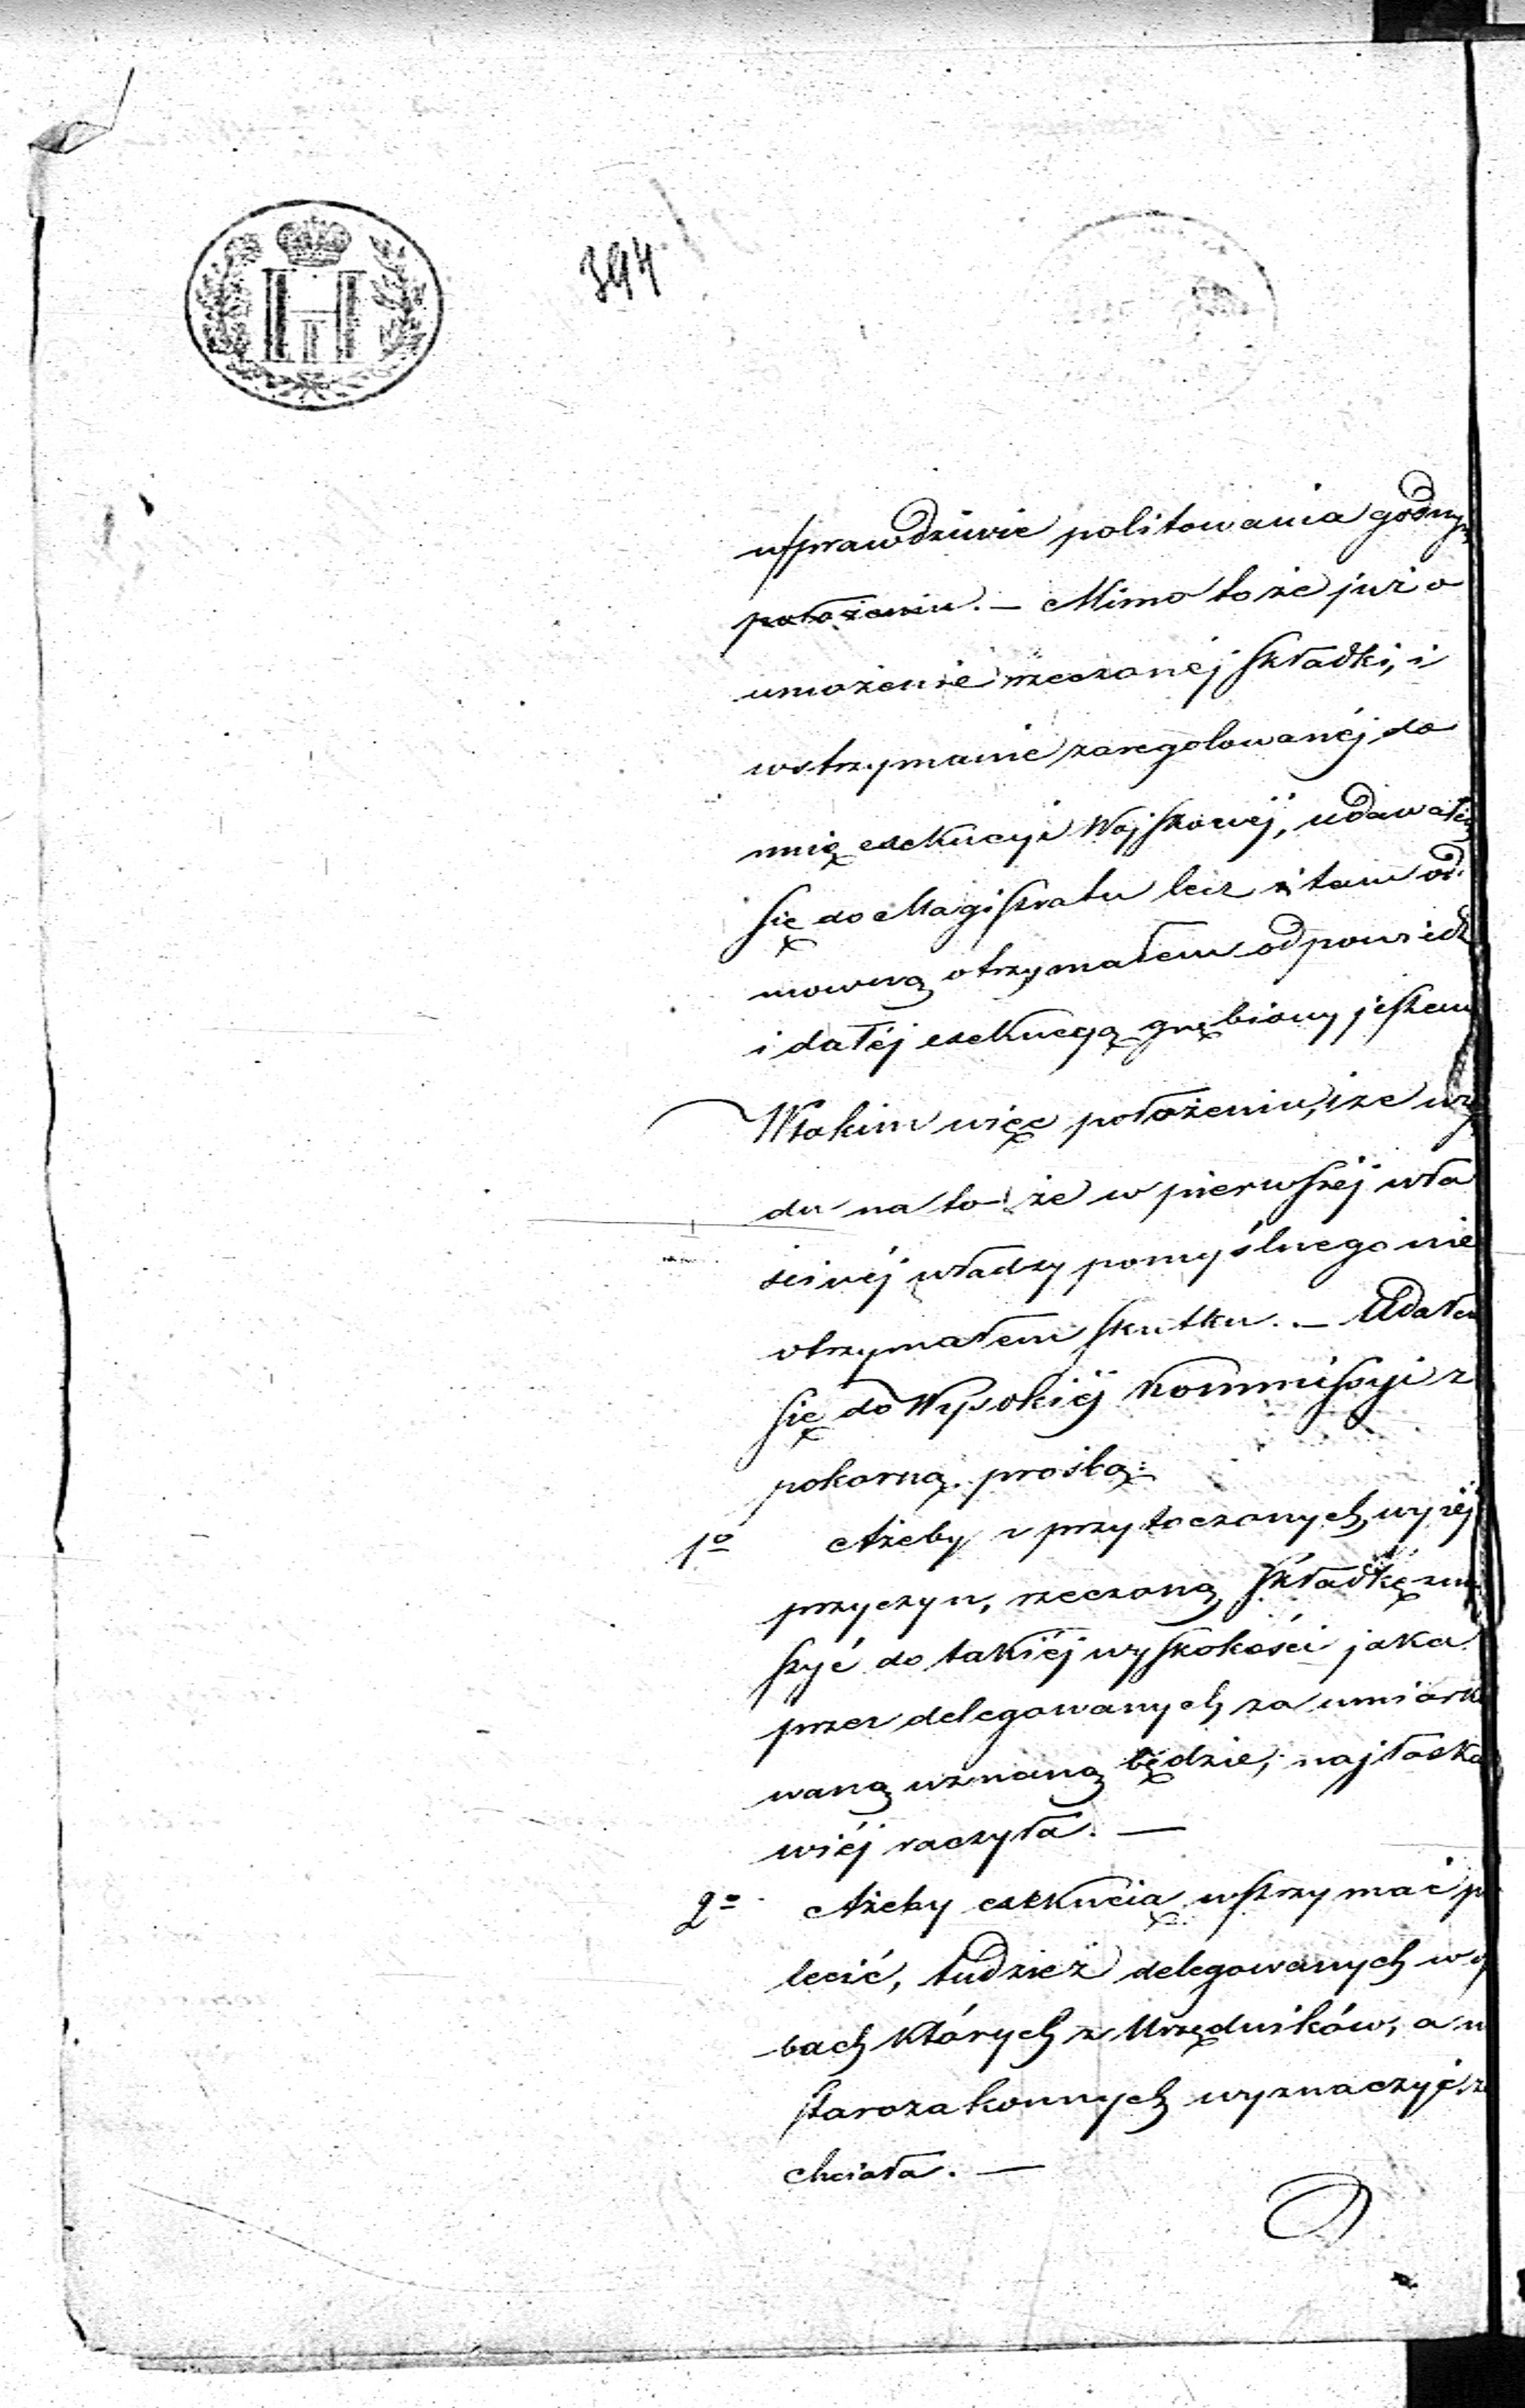 394
wsprawdziwie politowania godny
położeniu. — Mimo to że już o
umożenie rzeczonéj składki, i
wstrzymanie zaregolowanéj do
mnię exekucyi Wojskowéj, udawałem
się do Magistratu lecz i tam od
mowną otrzymałem odpowiedź
i daléj exekucyą gnębiony jestem
Wtakim więc położeniu, i ze wzglę
du na to że w pierwszéj wła
sciwéj władzy pomyślnego nie
otrzymałem skutku. — Udałem
się do Wysokiéj Kommissyi z
pokorną proźbą:
1o Ażeby z przytoczonych wyżéj
przyczyn, rzeczoną składkę zni
szyć do takiéj wyskokości jaka
przez delegowanych za umiarko
waną uznaną będzie, najłaska
wiéj raczyła. —
2o Ażeby exekucią wstrzymać po
lecić, tudzież delegowanych w oso
bach których z Urzędników, a
starozakonnych wyznaczyć
chciała. —